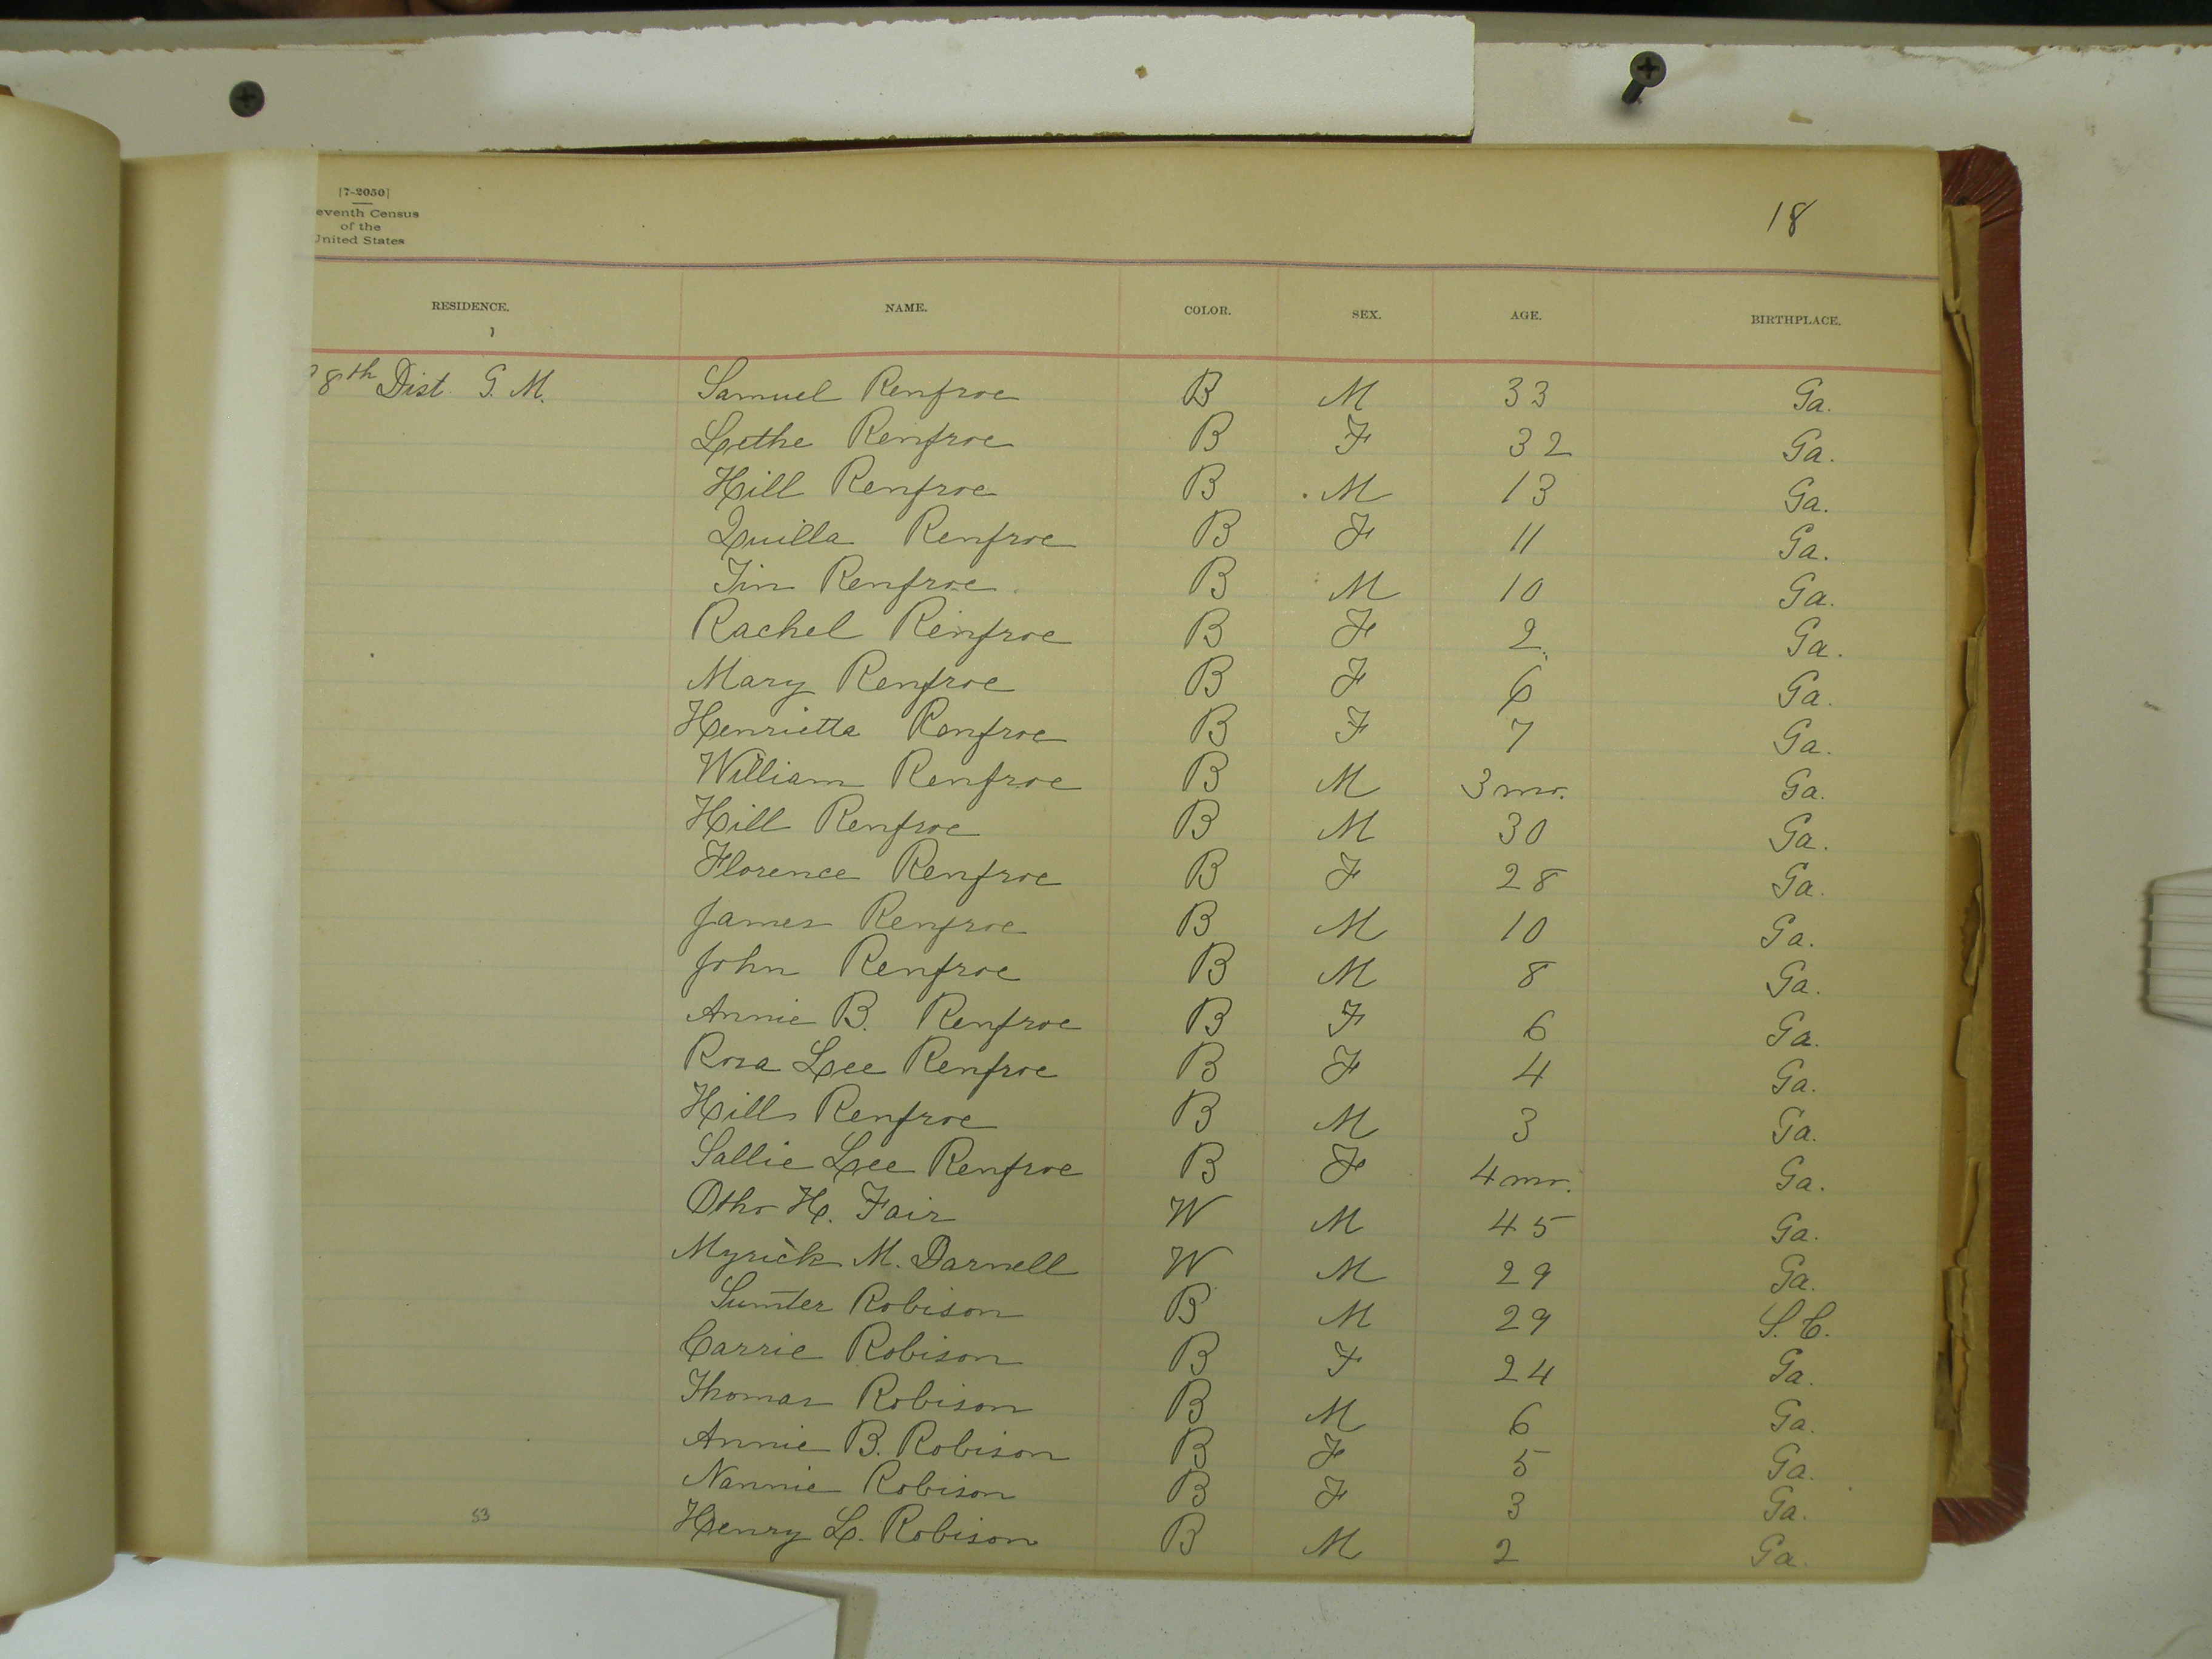 [7-2050]
eventh Census
of the
United States
18
RESIDENCE. NAME. COLOR. SEX. AGE. BIRTHPLACE.
8th Dist. G. M. Samuel Renfroe B M 33 Ga.
Lethe Renfroe B F 32 Ga.
Hill Renfroe B M 13 Ga.
Quilla Renfroe B F 11 Ga.
Tim Renfroe B M 10 Ga.
Rachel Renfroe B F 2 Ga.
Mary Renfroe B F 6 Ga.
Henrietta Renfroe B F 7 Ga.
William Renfroe B M 3 mo. Ga.
Hill Renfroe B M 30 Ga.
Florence Renfroe B F 28 Ga.
James Renfroe B M 10 Ga.
John Renfroe B M 8 Ga.
Annie B. Renfroe B F 6 Ga.
Rosa Lee Renfroe B F 4 Ga.
Hills Renfroe B M 3 Ga.
Sallie Lee Renfroe B F 4 mo. Ga.
Otho H. Fair W M 45 Ga.
Myrick M. Darnell W M 29 Ga.
Sumter Robison B M 29 S. C.
Carrie Robison B F 24 Ga.
Thomas Robison B M 6 Ga.
Annie B. Robison B F 5 Ga.
Nannie Robison B F 3 Ga.
53 Henry L. Robison B M 2 Ga.